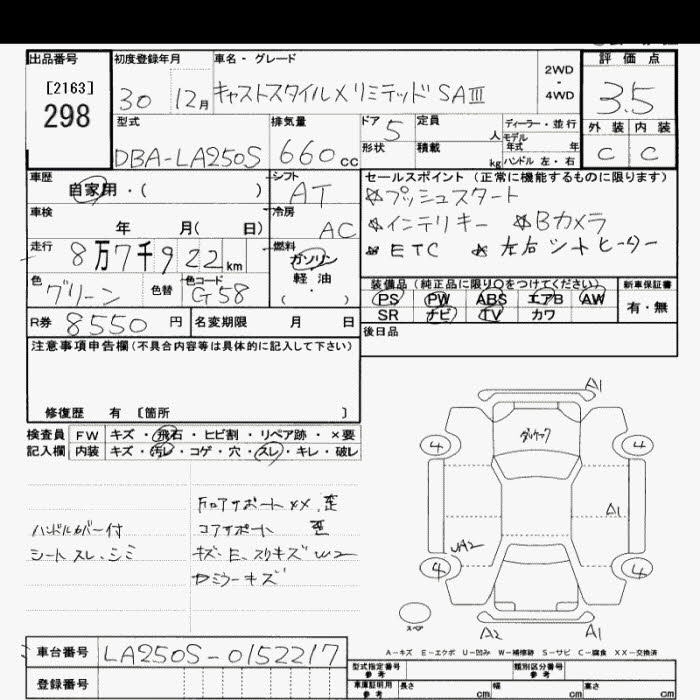 出品番号 初度登録年月 車名・グレード 評価点
[2163]
298
30 12月 キャストスタイルXリミテッドSAⅢ
2WD
・
4WD
3.5
型式 排気量 ドア 5 定員 人 ディーラー・並行 外装 内装
モデル
年式 年
DBA-LA250S 660cc 形状 積載 kg ハンドル 左・右 C C
車歴 シフト セールスポイント(正常に機能するものに限ります)
自家用・( ) AT ☆プッシュスタート
車検 冷房 ☆インテリキー ☆Bカメラ
年 月( 日) AC
走行 燃料 ★ETC ★左右シートヒーター
8万7千922km ガソリン
色 色替 色コード 軽油
グリーン G58 ・( )
装備品(純正品に限り○をつけてください) 新車保証書
PS PW ABS エアB AW 有・無
SR ナビ TV カワ
R券 8550円 名変期限 月 日 後日品
注意事項申告欄(不具合内容等は具体的に記入して下さい)
修復歴 有 [箇所 ]
検査員 FW キズ・飛石・ヒビ割・リペア跡・×要
記入欄 内装 キズ・汚レ・コゲ・穴・スレ・キレ・破レ
ハンドルカバー付
シートスレ、シミ
コアサポート 歪
キズ・E、スリキズ
ミラーキズ
A1
4 4
A1
4 4
スペア A2 A1
A-キズ E-エクボ U-凹み W-補修跡 S-サビ C-腐食 XX-交換済
車台番号 LA250S-0152217
登録番号
型式指定番号 類別区分番号
参考 参考
車庫証明用 長さ 幅 高さ
参考 cm cm cm